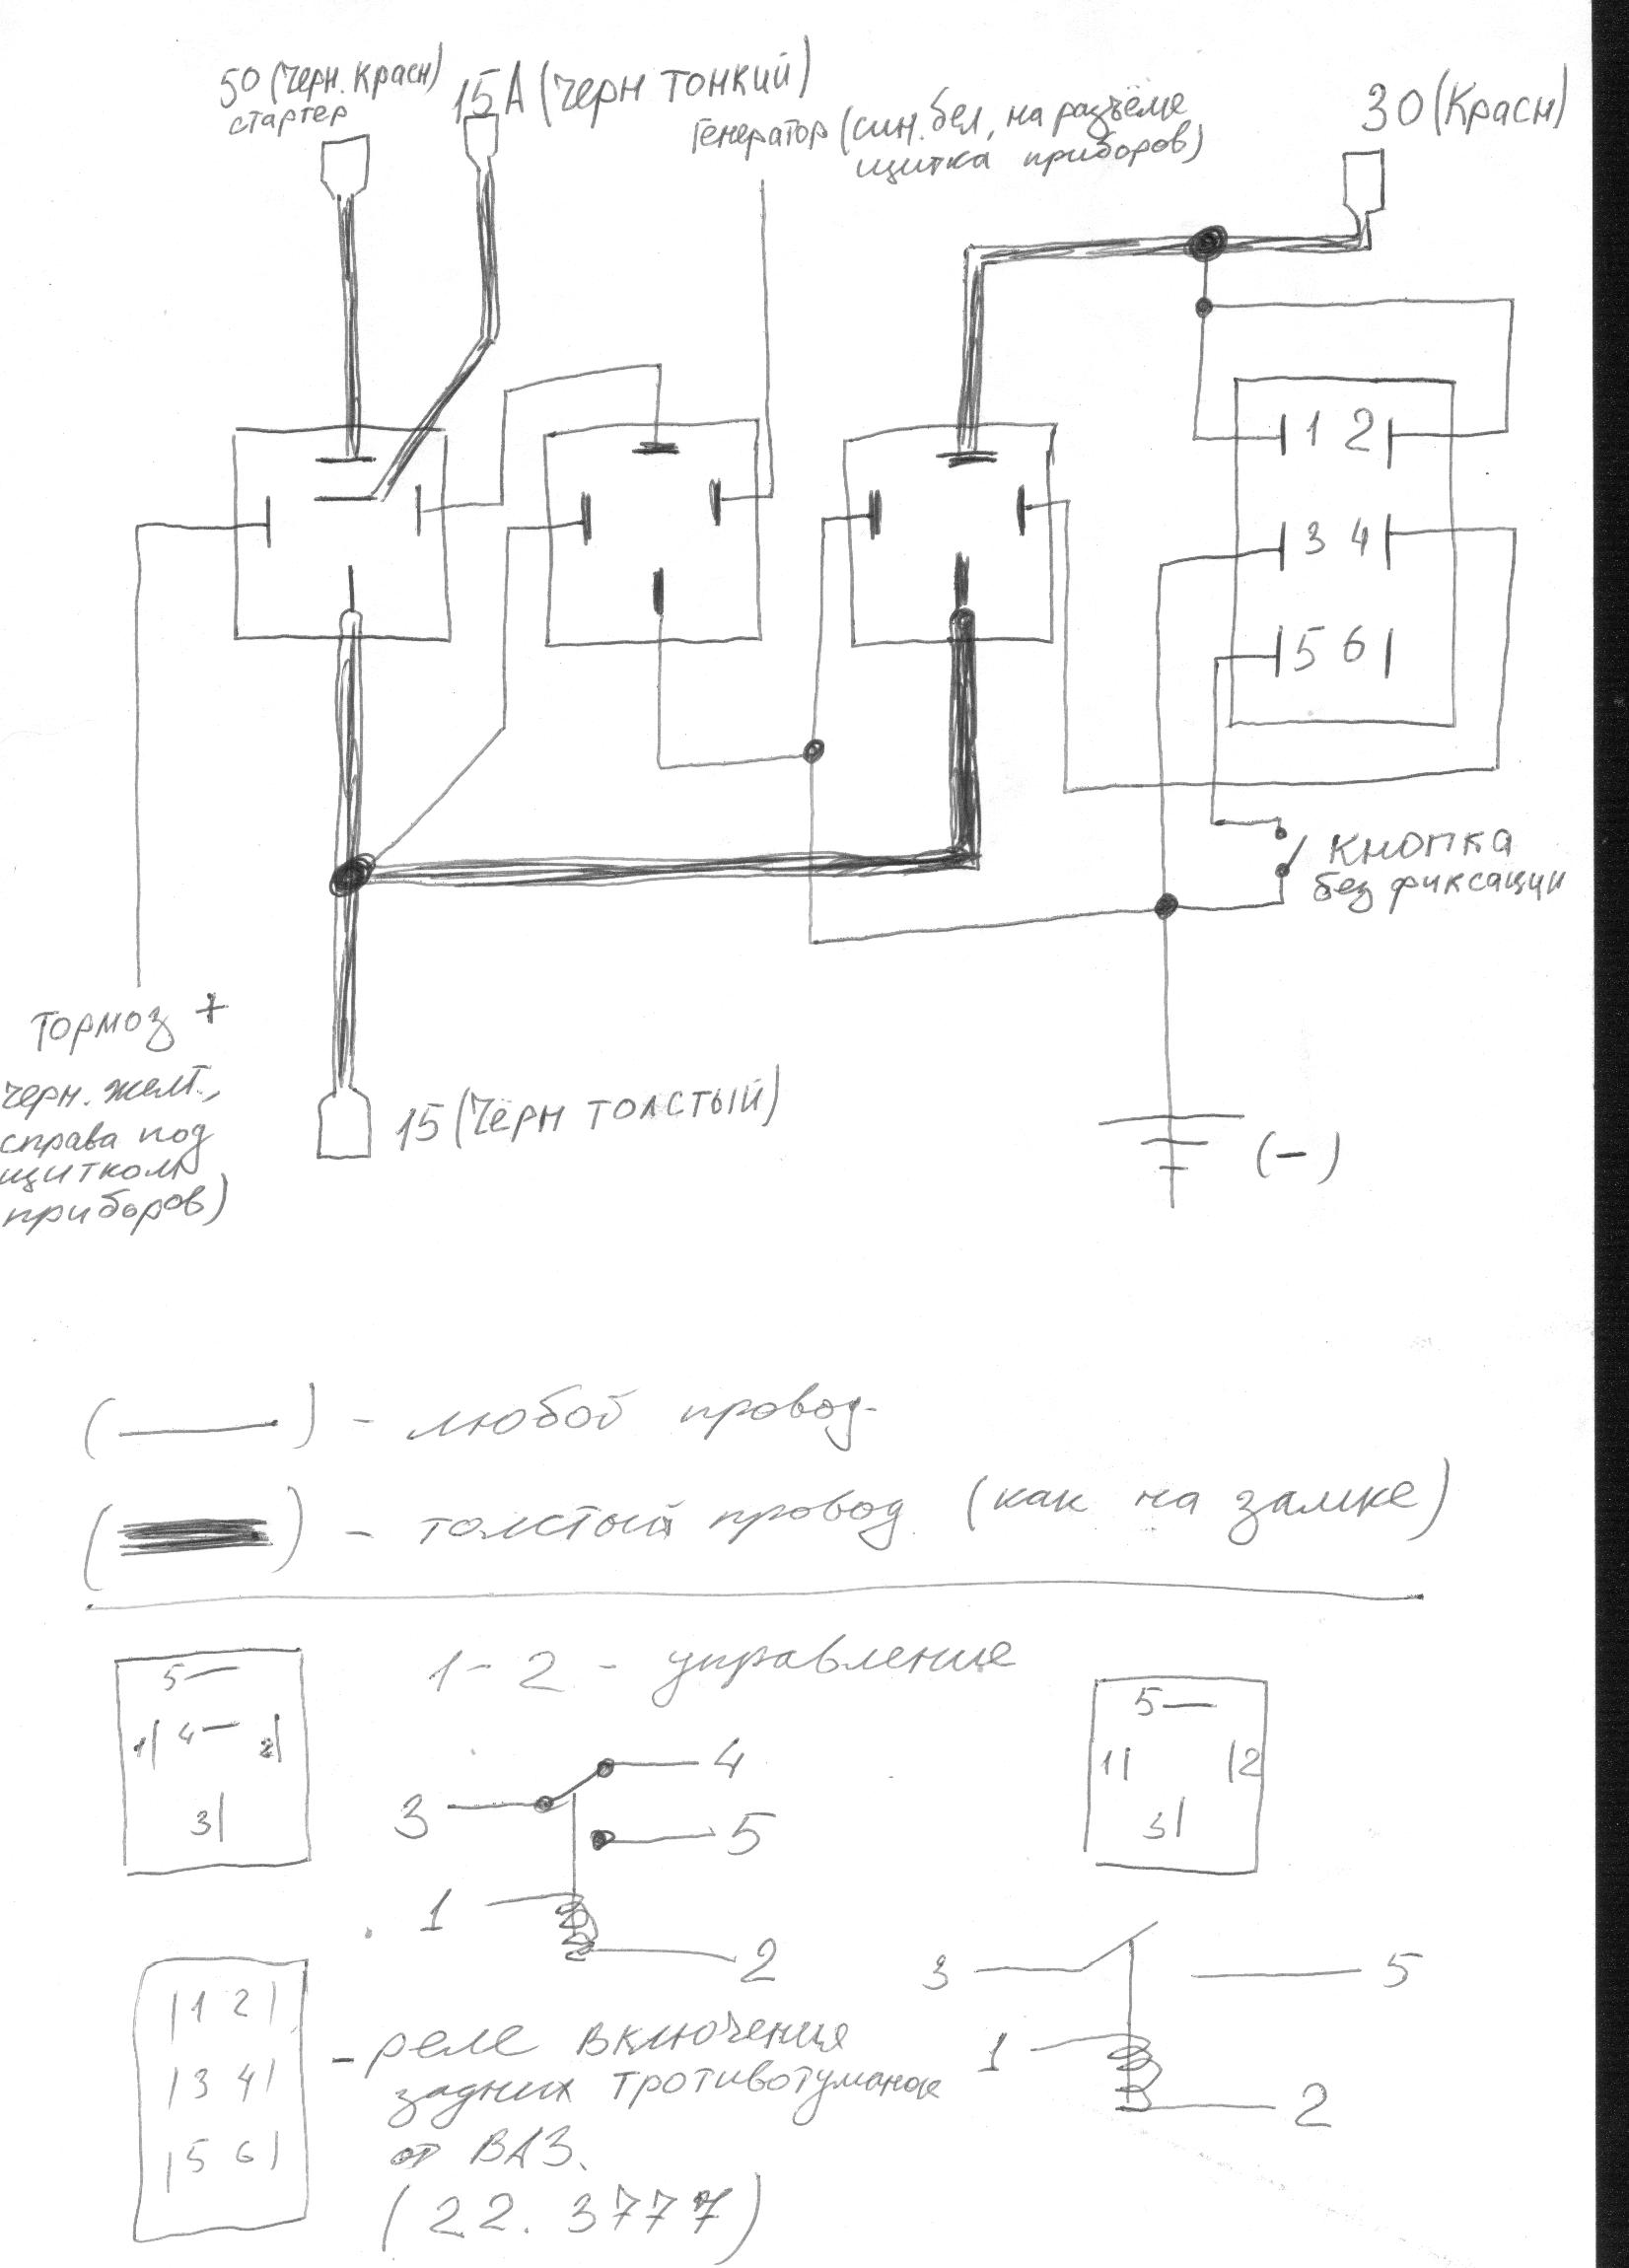 50 (черн. красн)
стартер
15А (черн тонкий)
генератор (син. бел, на разъёме
щитка приборов)
30 (красн)
1 2
3 4
5 6
кнопка
без фиксации
тормоз +
черн. желт.,
справа под
щитком
приборов)
15 (чёрн толстый)
(-)
( ) - любой провод.
( ) - толстый провод (как на замке)
5
1 4 2
3
1-2 - управление
4
3
5
1
2
5
1 2
3
3 5
1
2
1 2
3 4
5 6
- реле включения
задних тротивотуманок
от ВАЗ.
(22.3777)